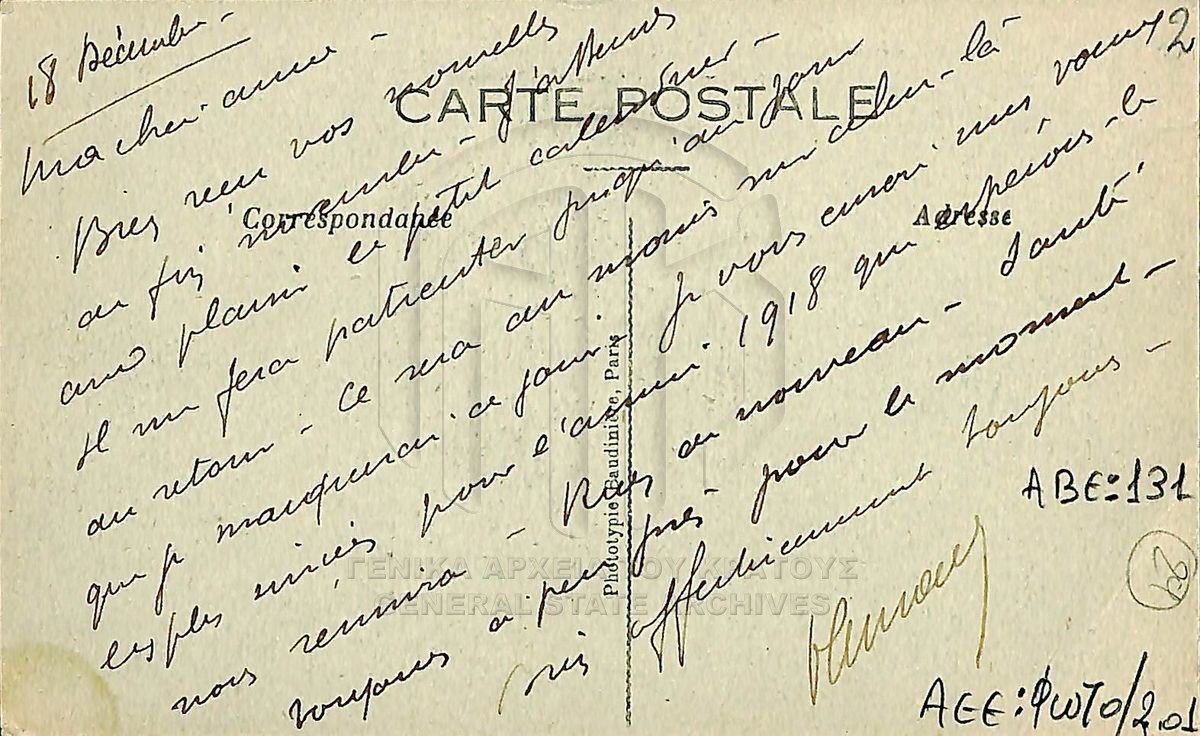 18 Décembre -
2
Ma chère amie -
CARTE POSTALE
Bien reçu vos nouvelles
du fin novembre - J'attends
avec plaisir le petit calendrier -
Correspondance
Adresse
Il me fera patienter jusqu'au jour
du retour - Ce sera au moins sur celui-là
que je marquerai ce jour! Je vous envoie mes vœux
les plus sincères pour l'année 1918 qui espérons-le
nous réunira - Rien de nouveau - Santé,
toujours à peu près pour le moment -
suis affectueusement toujours -
Phototypie Baudinière, Paris
ΓΕΝΙΚΑ ΑΡΧΕΙΑ ΤΟΥ ΚΡΑΤΟΥΣ
GENERAL STATE ARCHIVES
ABE:131
AEE:ΦΩΤΟ/2.01